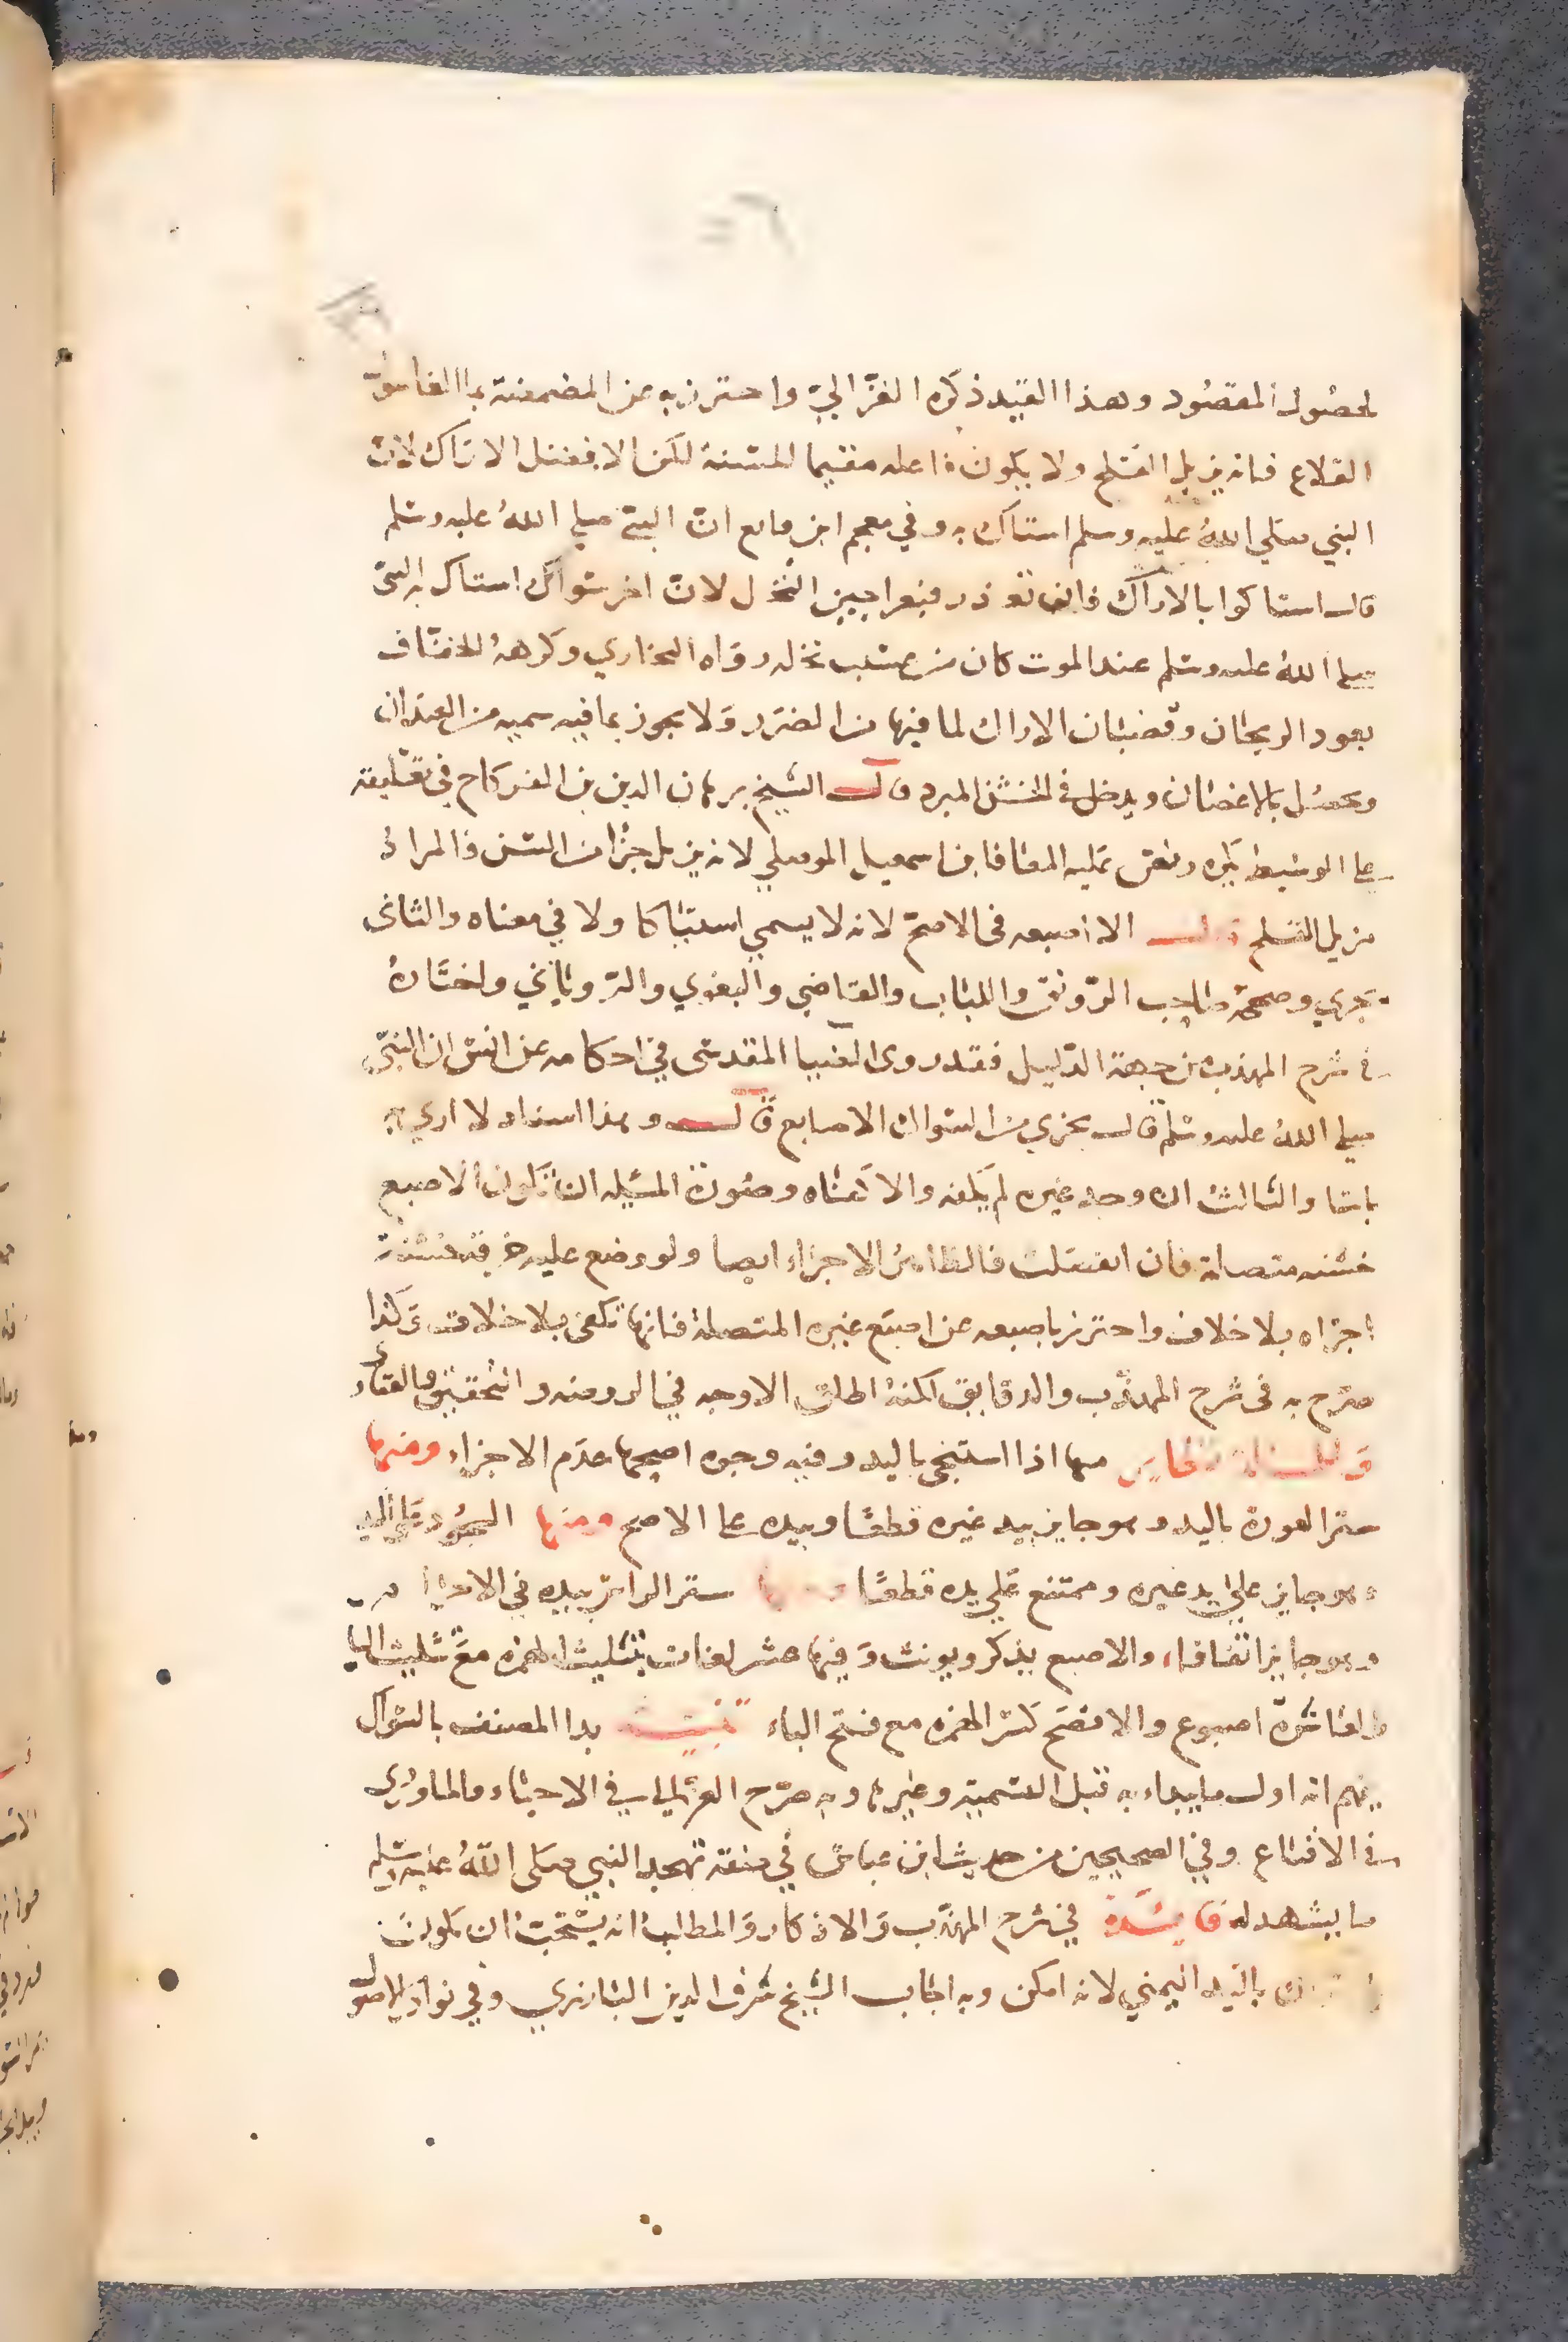 لحصول المقصود وهذا القيد ذكره الغزالي واحترز به عن المضمضة بماء الغاسول
القلاع فانه يزيل القلح ولا يكون فاعله مقيما للسنة لكن الافضل الاراك لان
النبي صلي الله عليه وسلم استاك به وفي معجم ابن قانع ان النبي صلي الله عليه وسلم
قال استاكوا بالاراك فان تعذر فبعراجين النخل لان اخر سواك استاك به النبي
صلي الله عليه وسلم عند الموت كان من عسيب نخله رواه البخاري وكرهه الخفاف
بعود الريحان وقضبان الاراك لما فيها من الضرر ولا يجوز بما فيه سميه من العيدان
ويحصل بالاغصان ويدخل في الخشن المبرد قال الشيخ برهان الدين بن الفركاح في تعليقه
علي الوسيط يكره ونص عليه المعافا بن اسمعيل الموصلي لانه يزيل جزا من السن فالمراد
مزيل القلح الا اصبعه في الاصح لانه لا يسمي استياكا ولا في معناه والثاني
يجزي وصححه صاحب الرونق واللباب والقاضي والبغوي والروياني واختاره
في شرح المهذب من جهة الدليل فقد روي الضيا المقدسي في احكامه عن انس ان النبي
صلي الله عليه وسلم قال يجزي من السواك الاصابع قال وهذا اسناد لا اري به
باسا والثالث ان وجد غيره لم يكفه والا كفاه وصورة المسيله ان تكون الاصبع
خشنه متصلة فان انفصلت فالظاهر الاجزاء ايضا ولو وضع عليه خرقة خشنة
اجزاه بلا خلاف واحترز باصبعه عن اصبع غيره المتصلة فانها تكفي بلا خلاف وكذا
صرح به في شرح المهذب والدقايق لكنه اطلق الاوجه في الروضه والتحقيق والفتاوي
منها اذا استنجي باليد وفيه وجوه اصحها عدم الاجزاء ومنها
ستر العورة باليد وهو جايز بيد غيره قطعا وبيده علي الاصح ومنها السجود علي اليد
وهو جايز علي يد غيره وممتنع علي يده قطعا ومنها ستر الراس بيده في الاحرام
وهو جايز اتفاقا، والاصبع يذكر ويونث وفيها عشر لغات بتثليث الهمزه مع تثليث البا
والعاشرة اصبوع والافصح كسر الهمزه مع فتح الباء تنبيه بدا المصنف بالسواك
يفهم انه اول ما يبداء به قبل التسمية وغيرها وبه صرح الغزالي في الاحياء والماوردي
في الاقناع وفي الصحيحين من حديث ابن عباس في صفة تهجد النبي صلي الله عليه وسلم
ما يشهد له فايدة في شرح المهذب والاذكار والمطالب انه يستحب ان يكون
باليد اليمني لانه امكن وبه اجاب الشيخ شرف الدين البارزي وفي نوادر الاصول